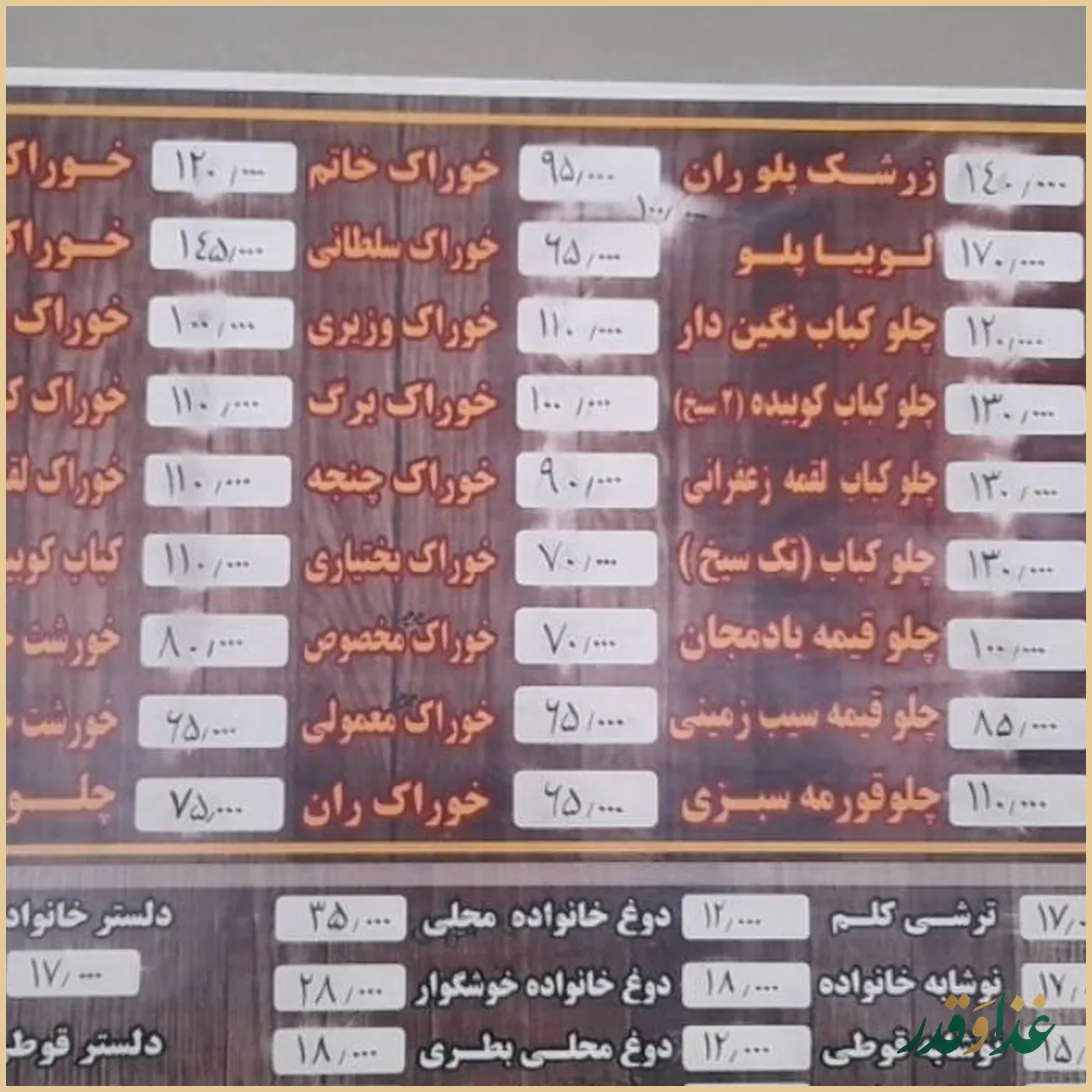 ۱۴۰٫۰۰۰ زرشک پلو ران ۹۵٫۰۰۰ خوراک خاتم ۱۲۰٫۰۰۰ خوراک
۱۰۰٫۰۰۰
۱۷۰٫۰۰۰ لوبیا پلو ۶۵٫۰۰۰ خوراک سلطانی ۱۴۵٫۰۰۰
۱۲۰٫۰۰۰ چلو کباب نگین دار ۱۱۰٫۰۰۰ خوراک وزیری ۱۰۰٫۰۰۰ خوراک
۱۳۰٫۰۰۰ چلو کباب کوبیده (۲ سیخ) ۱۰۰٫۰۰۰ خوراک برگ ۱۱۰٫۰۰۰ خوراک
۱۳۰٫۰۰۰ چلو کباب لقمه زعفرانی ۹۰٫۰۰۰ خوراک چنجه ۱۱۰٫۰۰۰ خوراک
۱۳۰٫۰۰۰ چلو کباب (تک سیخ) ۷۰٫۰۰۰ خوراک بختیاری ۱۱۰٫۰۰۰ کباب
۱۰۰٫۰۰۰ چلو قیمه بادمجان ۷۰٫۰۰۰ خوراک مخصوص ۸۰٫۰۰۰ خورشت
۸۵٫۰۰۰ چلو قیمه سیب زمینی ۶۵٫۰۰۰ خوراک معمولی ۶۵٫۰۰۰ خورشت
۱۱۰٫۰۰۰ چلوقورمه سبزی ۶۵٫۰۰۰ خوراک ران ۷۵٫۰۰۰ چلو
ترشی کلم ۱۲٫۰۰۰ دوغ خانواده محلی ۳۵٫۰۰۰ دلستر
نوشابه خانواده ۱۸٫۰۰۰ دوغ خانواده خوشگوار ۲۸٫۰۰۰ ۱۷٫۰۰۰
قوطی ۱۲٫۰۰۰ دوغ محلی بطری ۱۸٫۰۰۰ دلستر
غذا و قدر